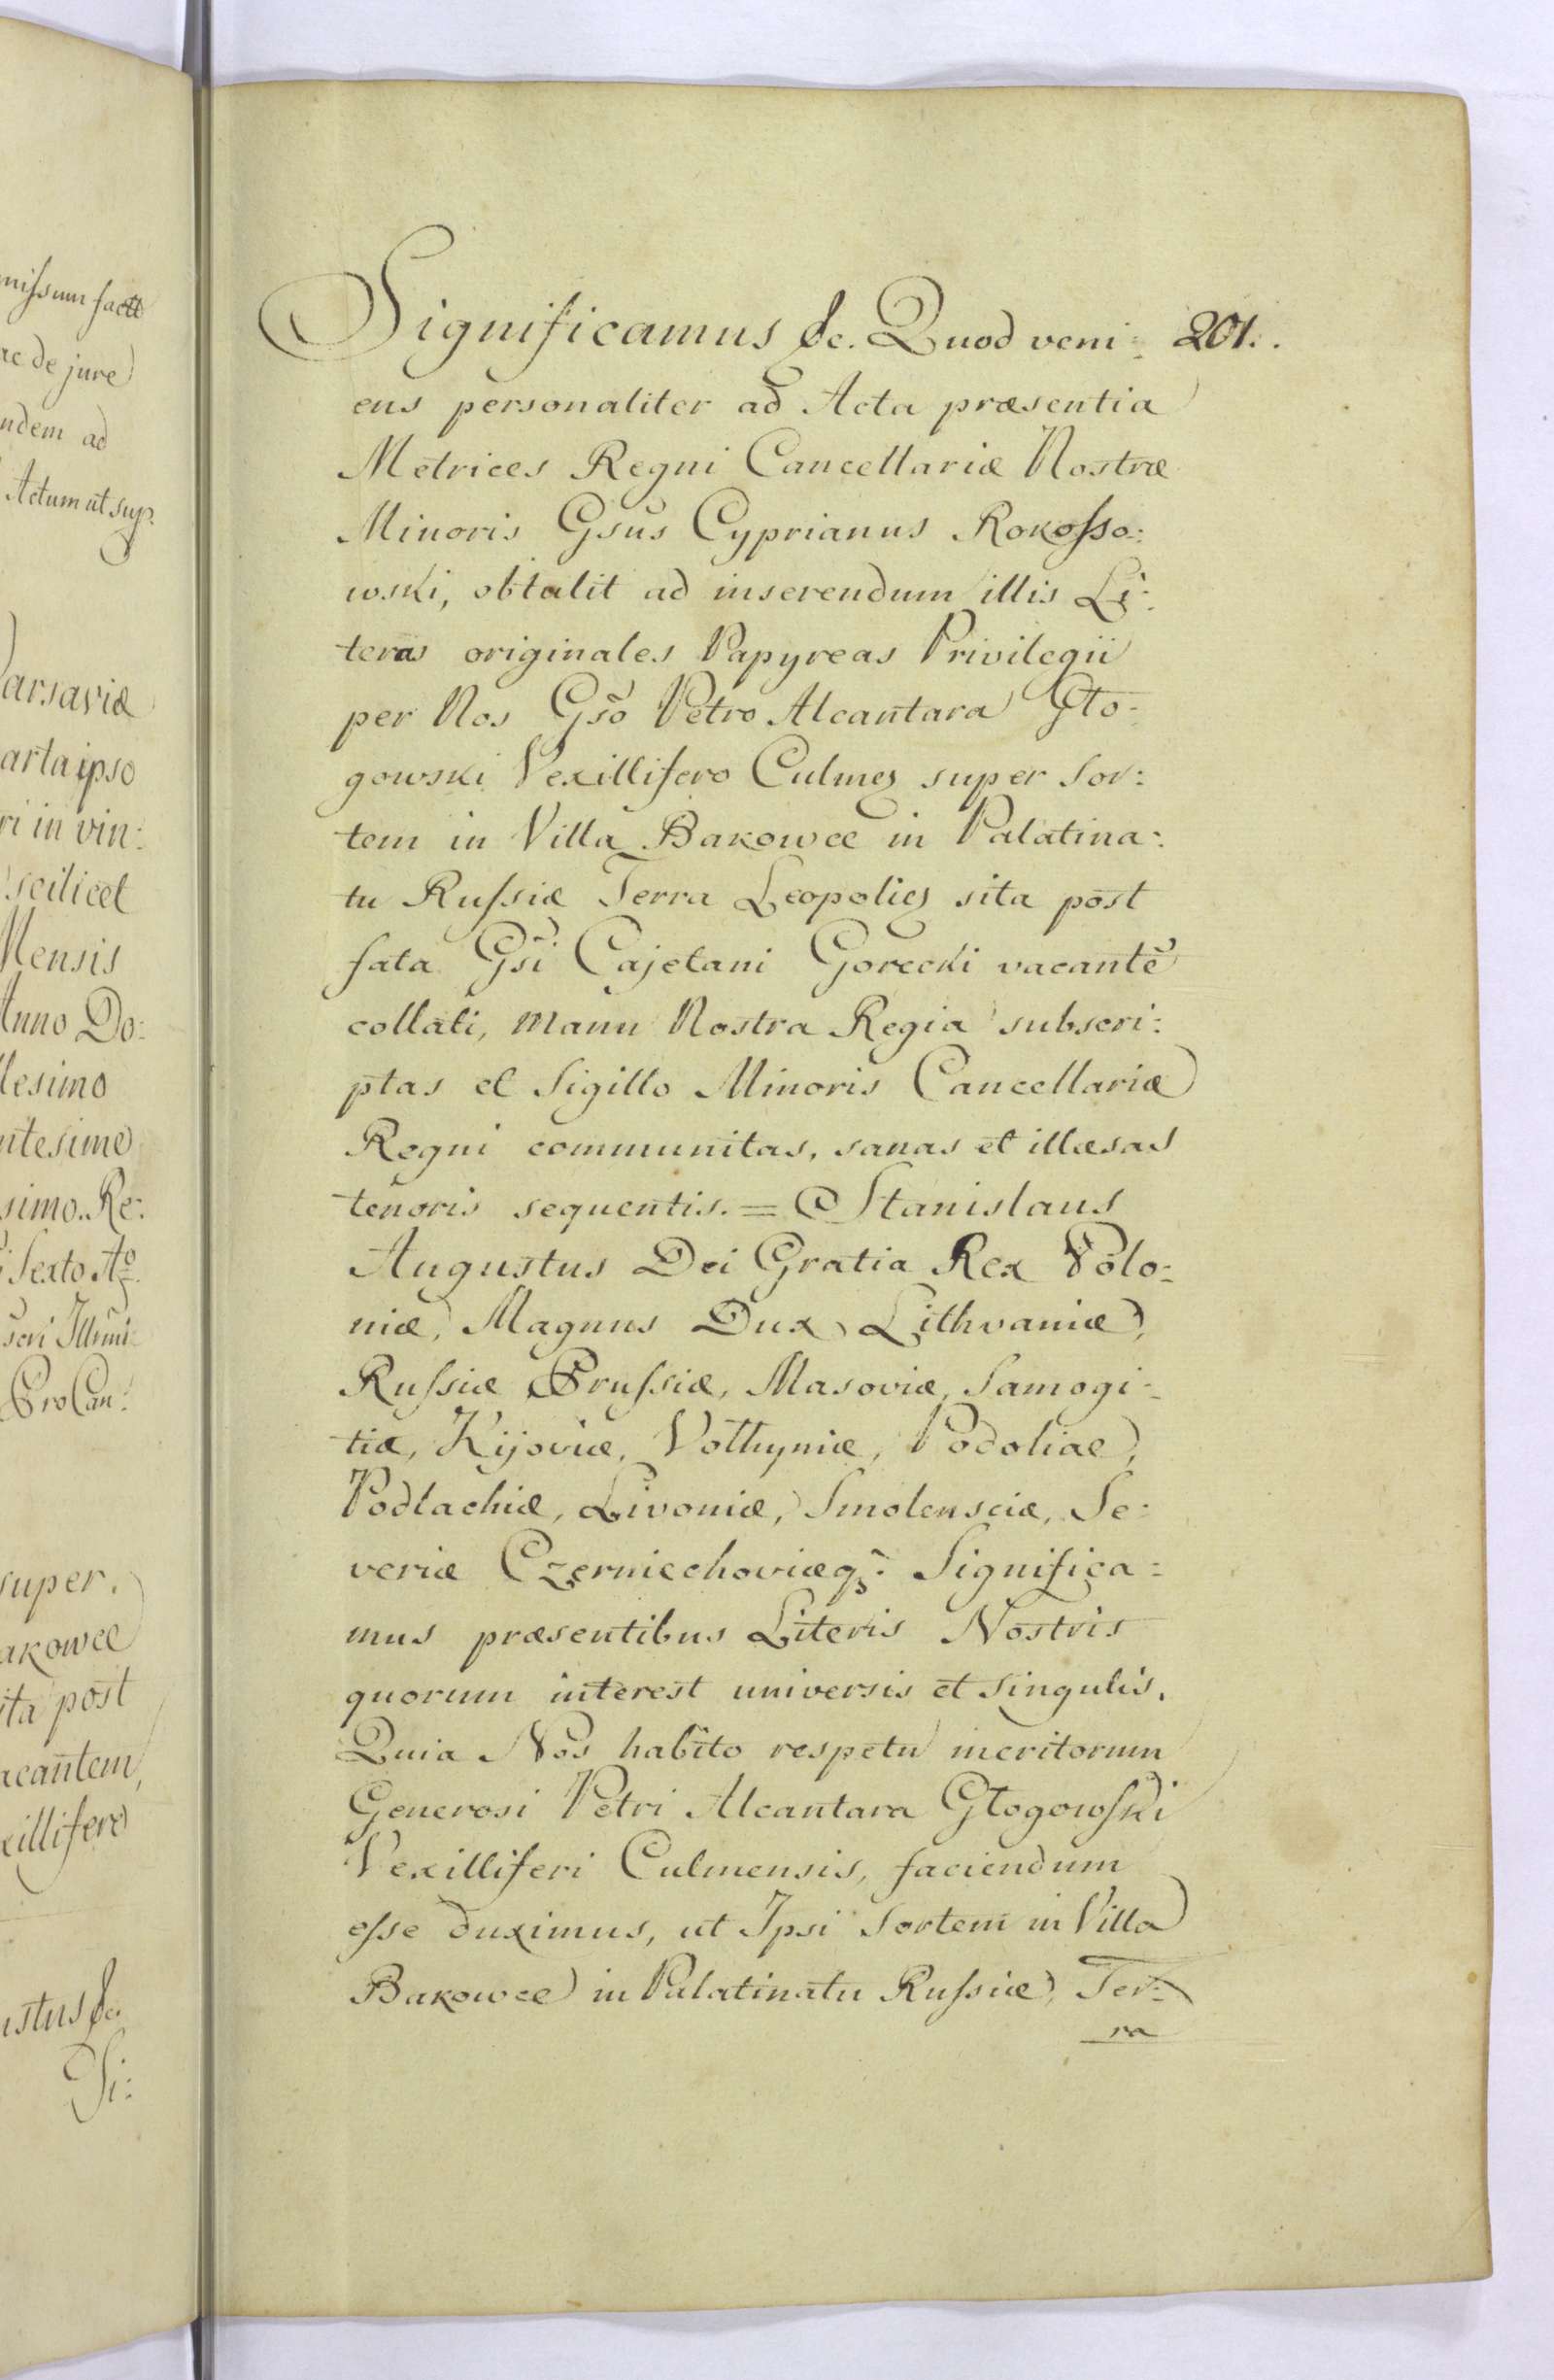 Significamus &c. Quod veni: 201.
ens personaliter ad Acta præsentia
Metrices Regni Cancellariæ Nostræ
Minoris Gsus Cyprianus Rokosso:
wski, obtulit ad inserendum illis Li:
teras originales Papyreas Privilegii
per Nos Gsõ Petro Alcantara Gło:
gowski Vexillifero Culmeȝ super Sor:
tem in Villa Bakowce in Palatina:
tu Russiæ Terra Leopolieȝ sita post
fata Gsĩ Cajetani Gorecki vacantẽ
collati, manu Nostra Regia subscri:
ptas et Sigillo Minoris Cancellariæ
Regni communitas, sanas et illæsas
tenoris sequentis. = Stanislaus
Augustus Dei Gratia Rex Polo:
niæ, Magnus Dux Lithvaniæ,
Russiæ Prussiæ, Masoviæ, Samogi:
tiæ, Kijoviæ, Volhyniæ, Podoliae,
Podlachiæ, Livoniæ, Smolensciæ, Se:
veriæ Czerniechoviæq̃. Significa:
mus præsentibus Literis Nostris
quorum interest universis et singulis.
Quia Nos habito respetu meritorum
Generosi Petri Alcantara Głogowski
Vexilliferi Culmensis, faciendum
esse duximus, ut Ipsi Sortem in Villa
Bakowce in Palatinatu Russiæ, Ter:
ra
missum facte
de jure
ad
Actum ut sup.
arsaviæ
arta ipso
ri in vin:
scilicet
Mensis
Anno Do:
lesimo
ntesimo
simo. Re:
Sexto Aº
Pro Can:
super.
akowce
ita post
acantem,
xillifero
ustus &c
Si: